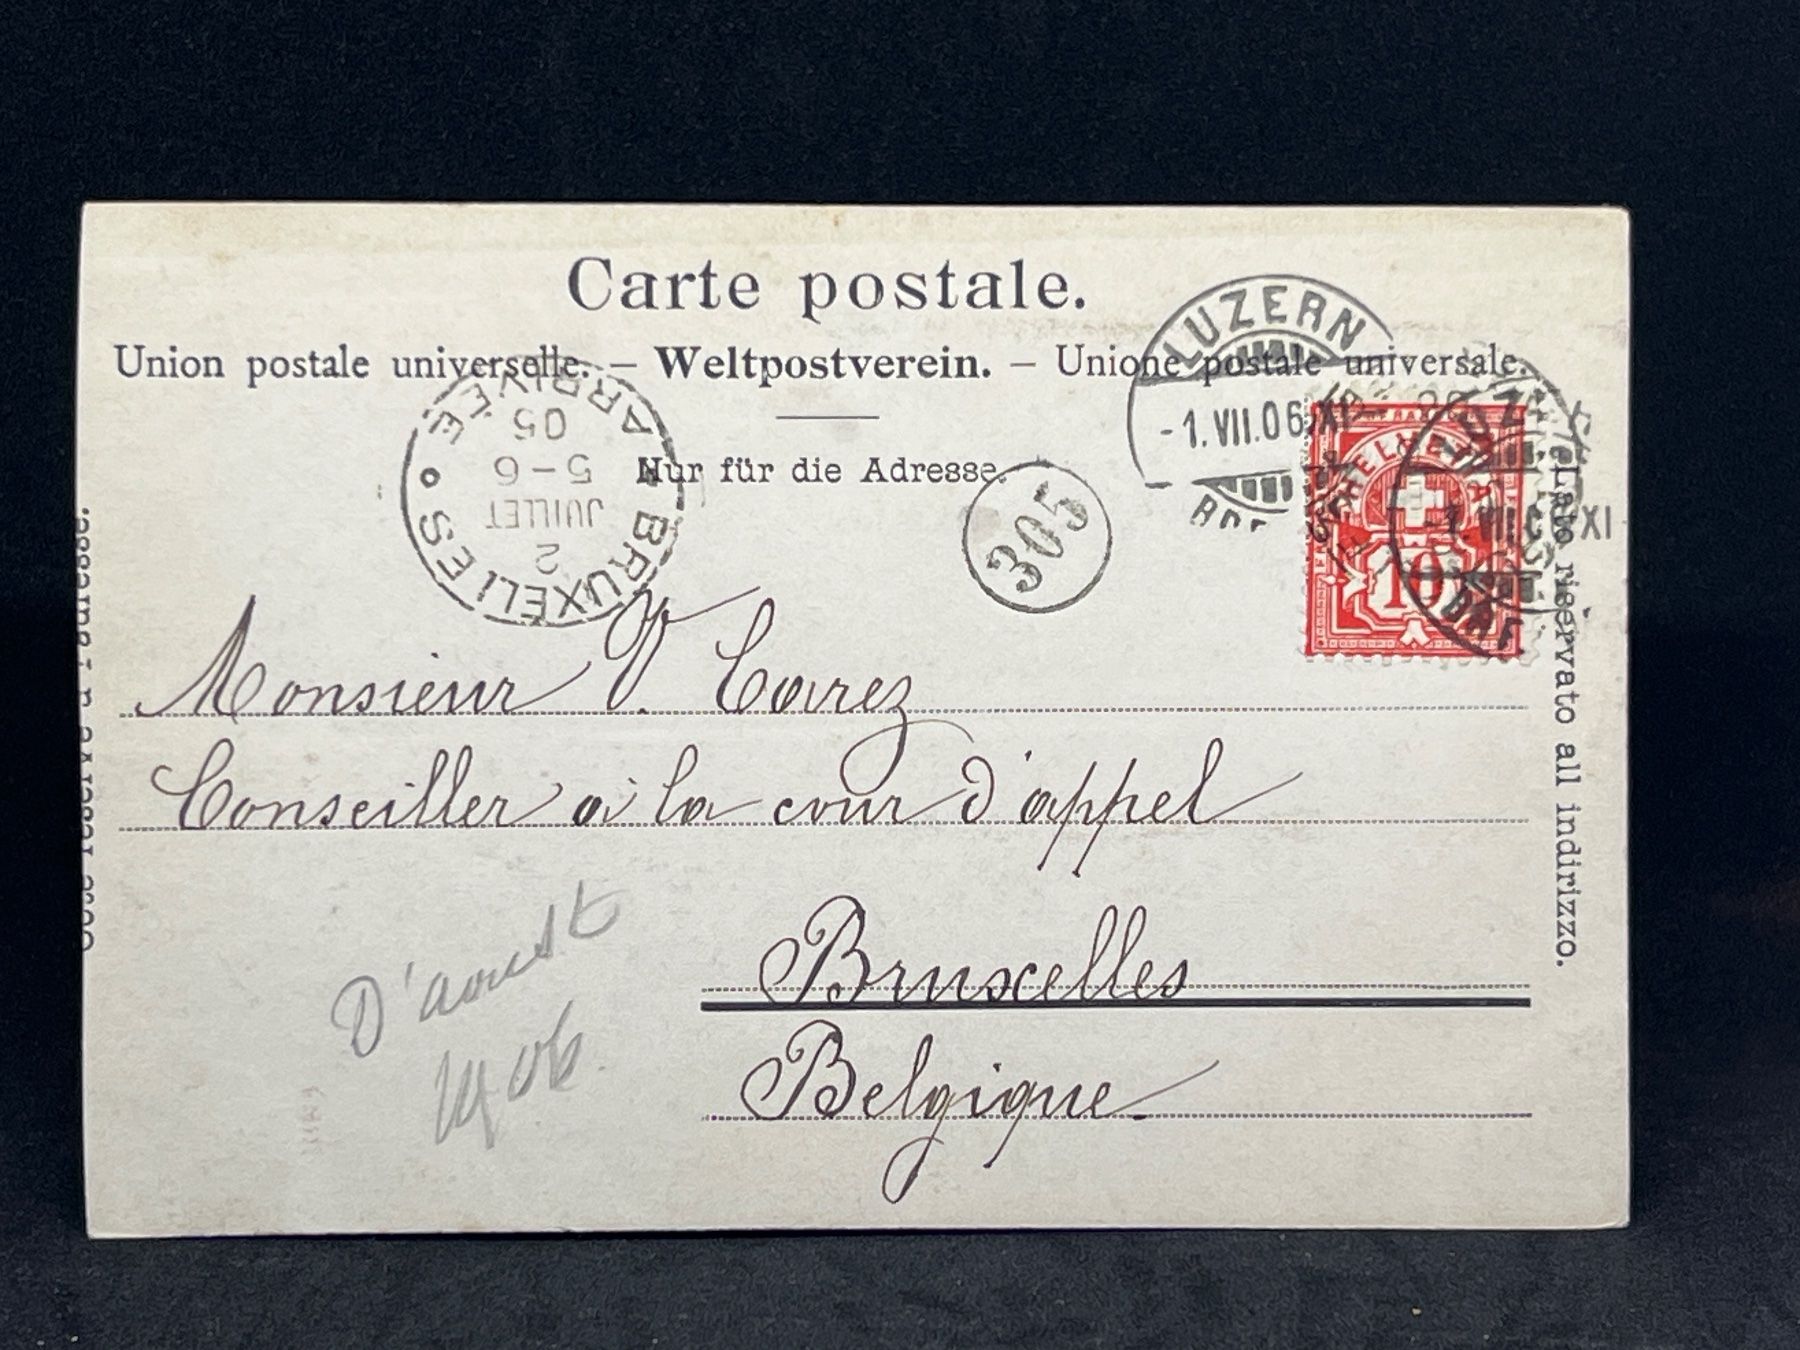 Carte postale.
Union postale universelle. – Weltpostverein. – Unione postale universale.
Nur für die Adresse.
LUZERN
-1.VII.06.XI-
BRUXELLES
ARRIVÉE
2
JUILLET
5-6
05
305
HELVETIA
10
LUZ
-1.VII. XI
Côté réservé à l'adresse.
Lato riservato all indirizzo.
Monsieur V. Carez
Conseiller à la cour d'appel
Bruxelles
Belgique
D'aoust